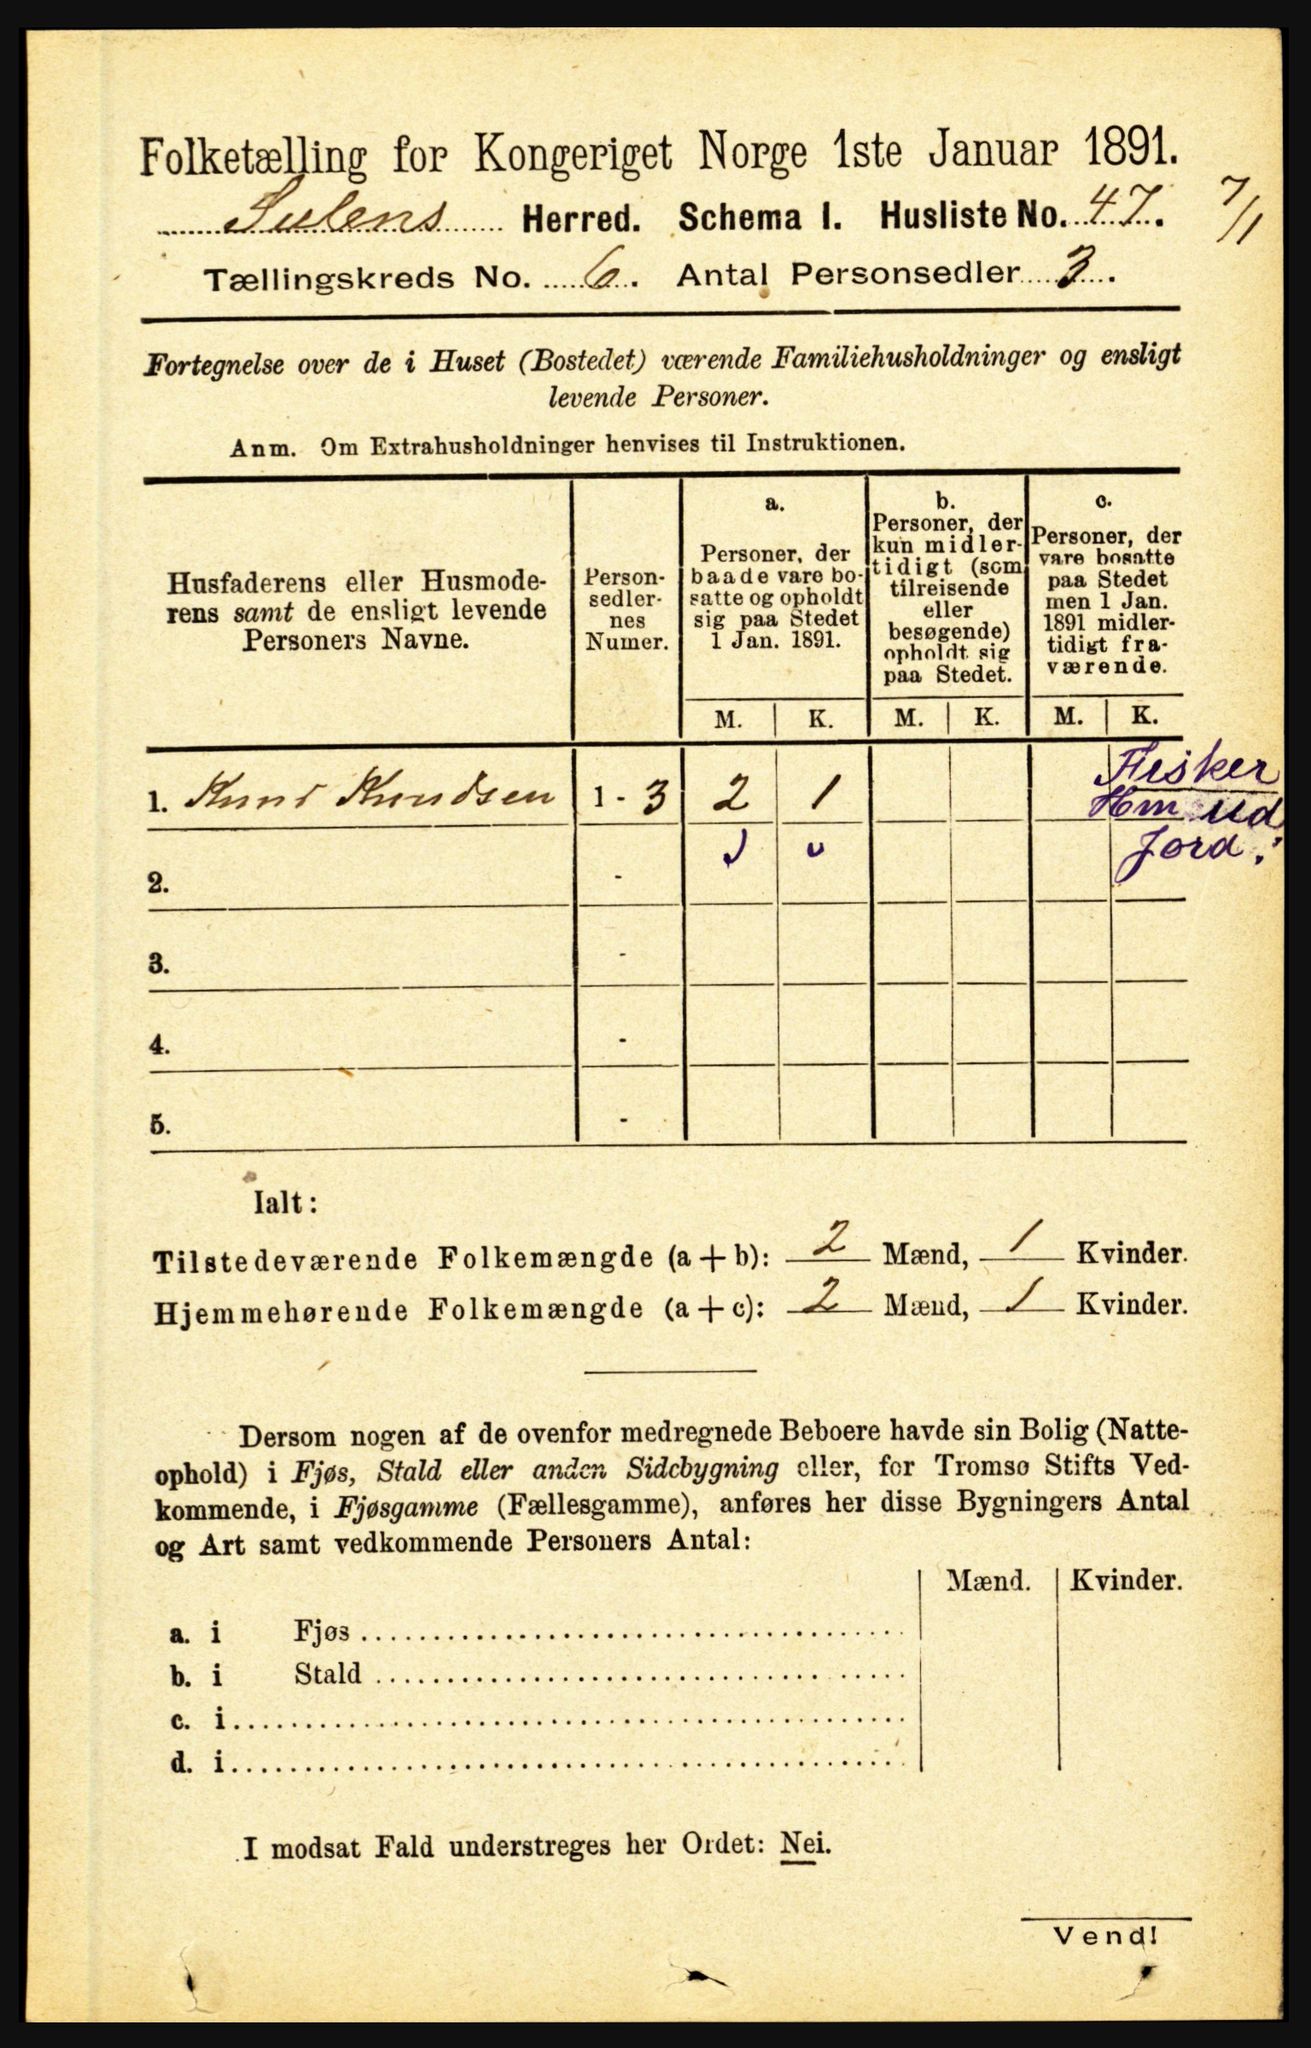 Folketælling for Kongeriget Norge 1ste Januar 1891.
Sulens Herred. Schema I. Husliste No. 47.
7/1
Tællingskreds No. 6. Antal Personsedler 3.
Fortegnelse over de i Huset (Bostedet) værende Familiehusholdninger og ensligt
levende Personer.
Anm. Om Extrahusholdninger henvises til Instruktionen.
Husfaderens eller Husmode-
rens samt de ensligt levende
Personers Navne.
Person-
sedler-
nes
Numer.
a.
Personer, der
baade vare bo-
satte og opholdt
sig paa Stedet
1 Jan. 1891.
b.
Personer, der
kun midler-
tidigt (som
tilreisende
eller
besøgende)
opholdt sig
paa Stedet.
c.
Personer, der
vare bosatte
paa Stedet
men 1 Jan.
1891 midler-
tidigt fra-
værende.
M. K. M. K. M. K.
1. Knud Knudsen 1 - 3 2 1
Fisker
Hm ud
Jord.
2. -
3. -
4. -
5. -
Ialt:
Tilstedeværende Folkemængde (a + b): 2 Mænd, 1 Kvinder.
Hjemmehørende Folkemængde (a + c): 2 Mænd, 1 Kvinder.
Dersom nogen af de ovenfor medregnede Beboere havde sin Bolig (Natte-
ophold) i Fjøs, Stald eller anden Sidebygning eller, for Tromsø Stifts Ved-
kommende, i Fjøsgamme (Fællesgamme), anføres her disse Bygningers Antal
og Art samt vedkommende Personers Antal:
Mænd. Kvinder.
a. i Fjøs
b. i Stald
c. i
d. i
I modsat Fald understreges her Ordet: Nei.
Vend!